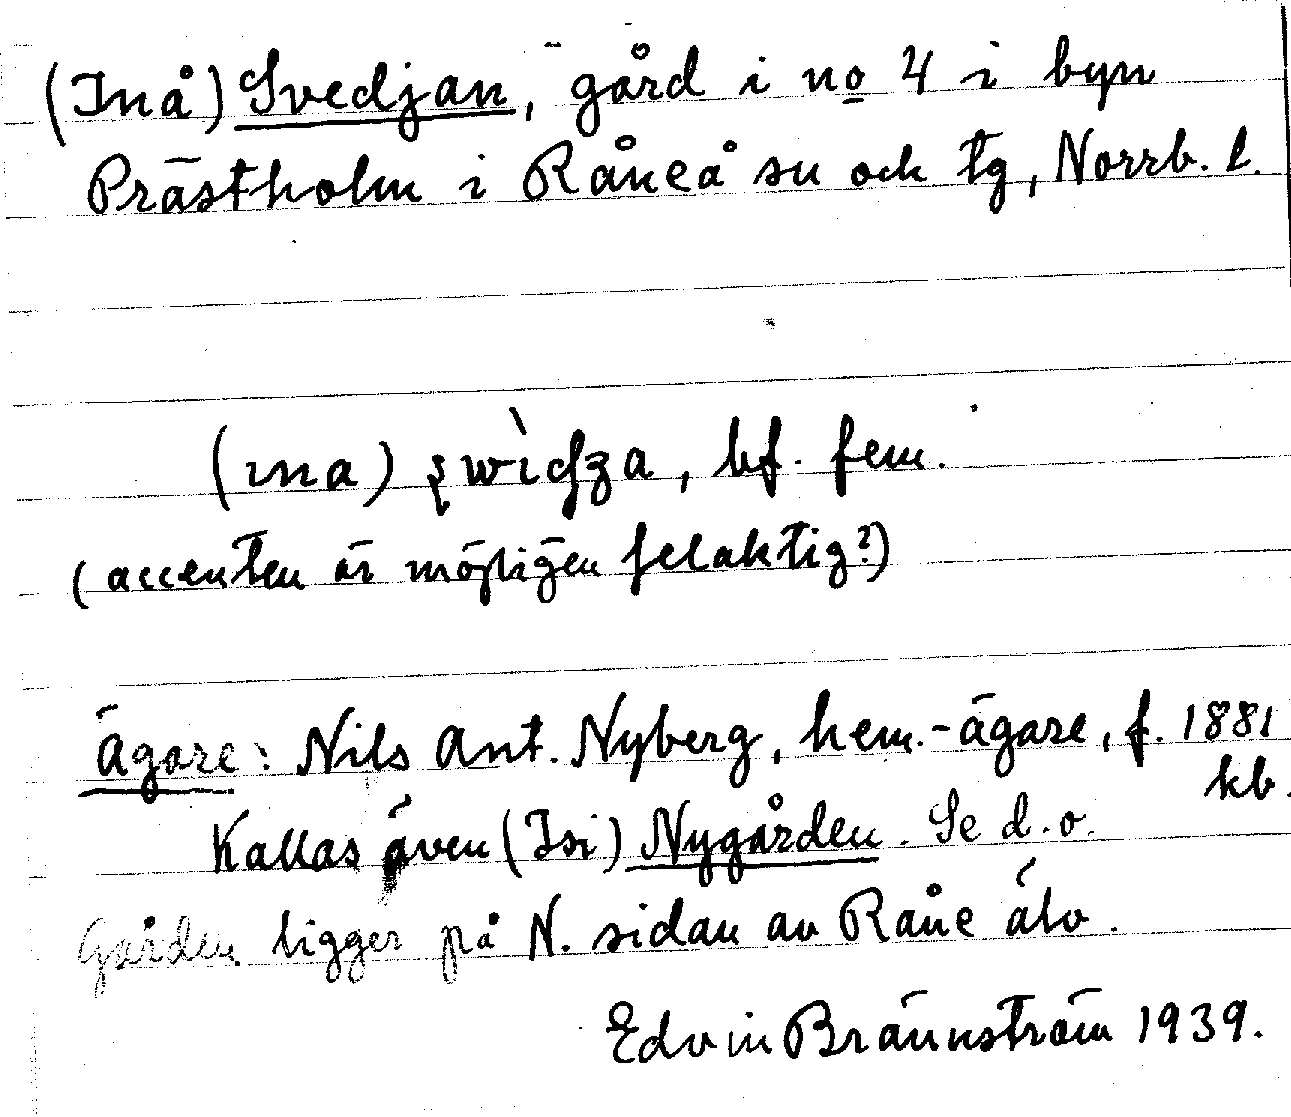 (Inå) Svedjan, gård i no 4 i byn
Prästholm i Råneå sn och tg, Norrb. l.
(ına) , bf. fem.
(accenten är möjligen felaktig?)
Ägare: Nils Ant. Nyberg, hem.-ägare, f. 1881
kb.
Kallas även (Isi) Nygården. Se d.o.
Gården ligger på N. sidan av Råne älv.
Edvin Brännström 1939.